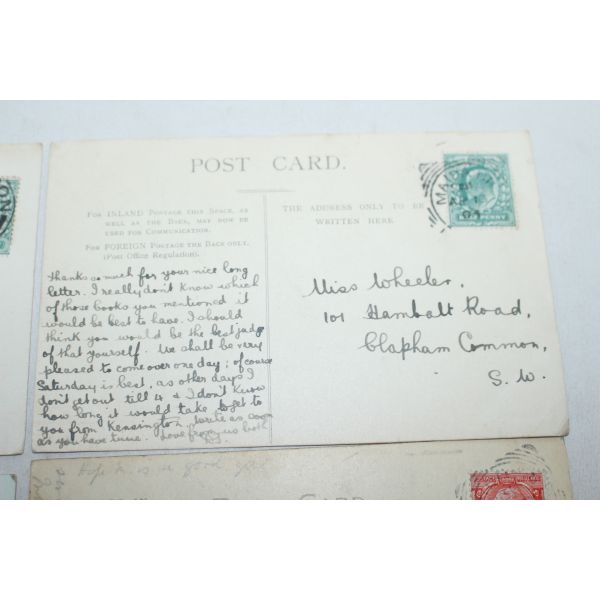 POST CARD.
FOR INLAND POSTAGE THIS SPACE, AS
WELL AS THE BACK, MAY NOW BE
USED FOR COMMUNICATION.
FOR FOREIGN POSTAGE THE BACK ONLY.
(Post Office Regulation).
THE ADDRESS ONLY TO BE
WRITTEN HERE
HALFPENNY
Thanks so much for your nice long
letter. I really don't know which
of those books you mentioned it
would be best to have. I should
think you would be the best judge
of that yourself. We shall be very
pleased to come over one day; of course
Saturday is best, as other days I
don't get out till 4 & I don't know
how long it would take to get to
you from Kensington. Write as soon
as you have time. Love from us both
Miss Wheeler,
101 Hambalt Road,
Clapham Common,
S. W.
is a good
CARD